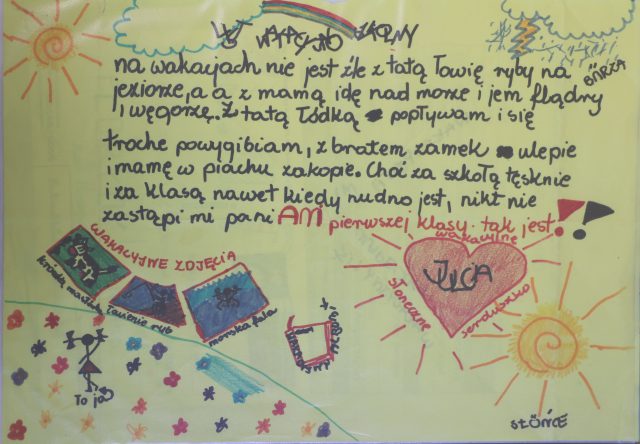 na wakacjach nie jest źle z tatą łowię ryby na
jeziorze, a a z mamą idę nad morze i jem flądry
i węgorze. Z tatą łódką popływam i się
BURZA
troche powygibiam, z bratem zamek ulepie
i mamę w piachu zakopie. Choć za szkołą tęsknie
i za klasą nawet kiedy nudno jest, nikt nie
zastąpi mi pani AM pierwszej klasy. tak jest!
WAKACYJNE ZDJĘCIA
łowienie ryb
morska fala
To ja
wakacyjne
słoneczne
serduszko
JULCIA
SŁOŃCE